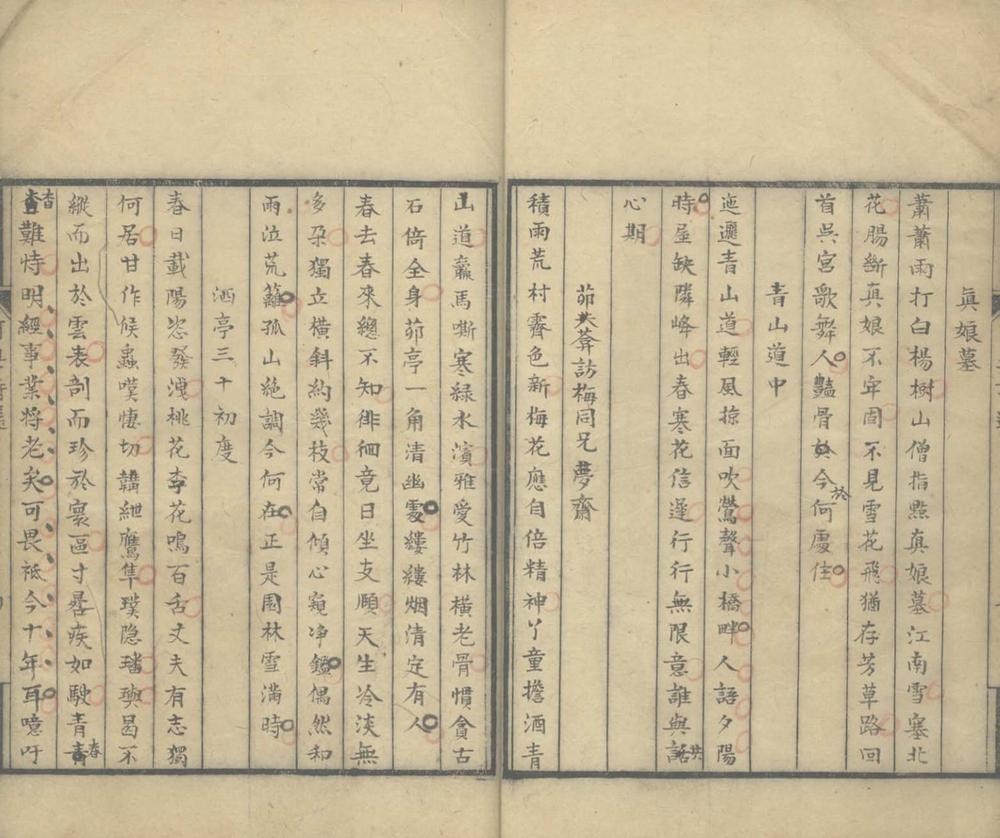 真娘墓
蕭蕭雨打白楊樹山僧指點真娘墓江南雪塞北
花腸斷真娘不牢固不見雪花飛猶存芳草路回
首吳宮歌舞人豔骨於今何處住
青山道中
迤邐青山道輕風掠面吹鶯聲小橋畔人語夕陽
時屋缺隣峰出春寒花信遲行行無限意誰與話共
心期
茆夫葊訪梅同兄夢齋
積雨荒村霽色新梅花應自倍精神丫童擔酒青
山道羸馬嘶寒綠水濱雅愛竹林橫老骨慣貪古
石倚全身茆亭一角清幽處縷縷烟清定有人
春去春來總不知徘徊竟日坐支頤天生冷淡無
多朶獨立橫斜約幾枝常自傾心窺净鏡偶然和
雨泣荒籬孤山絶調今何在正是園林雪滿時
洒亭三十初度
春日載陽恣發洩桃花李花鳴百舌丈夫有志獨
何居甘作候蟲嘆悽切韝紲鷹隼璞隐璠璵曷不
縱而出於雲表剖而珍於寰區寸晷疾如駛青春
杳難恃明經事業将老矣可畏祗今十年耳噫吁